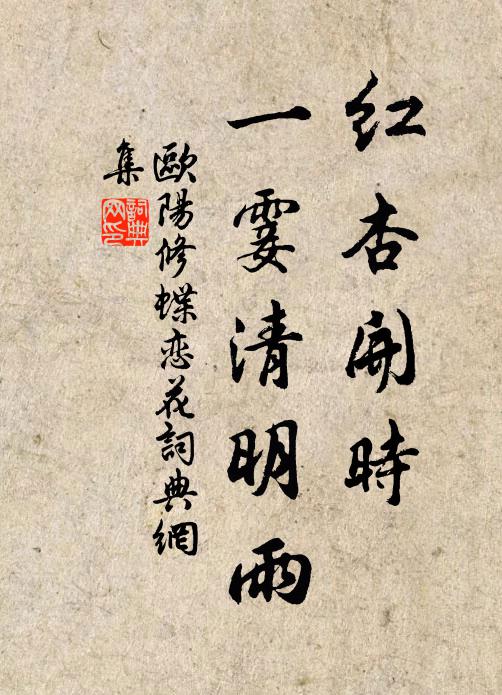 紅杏開時
一霎清明雨
歐陽修蝶恋花詞典網
集
詞典
网印